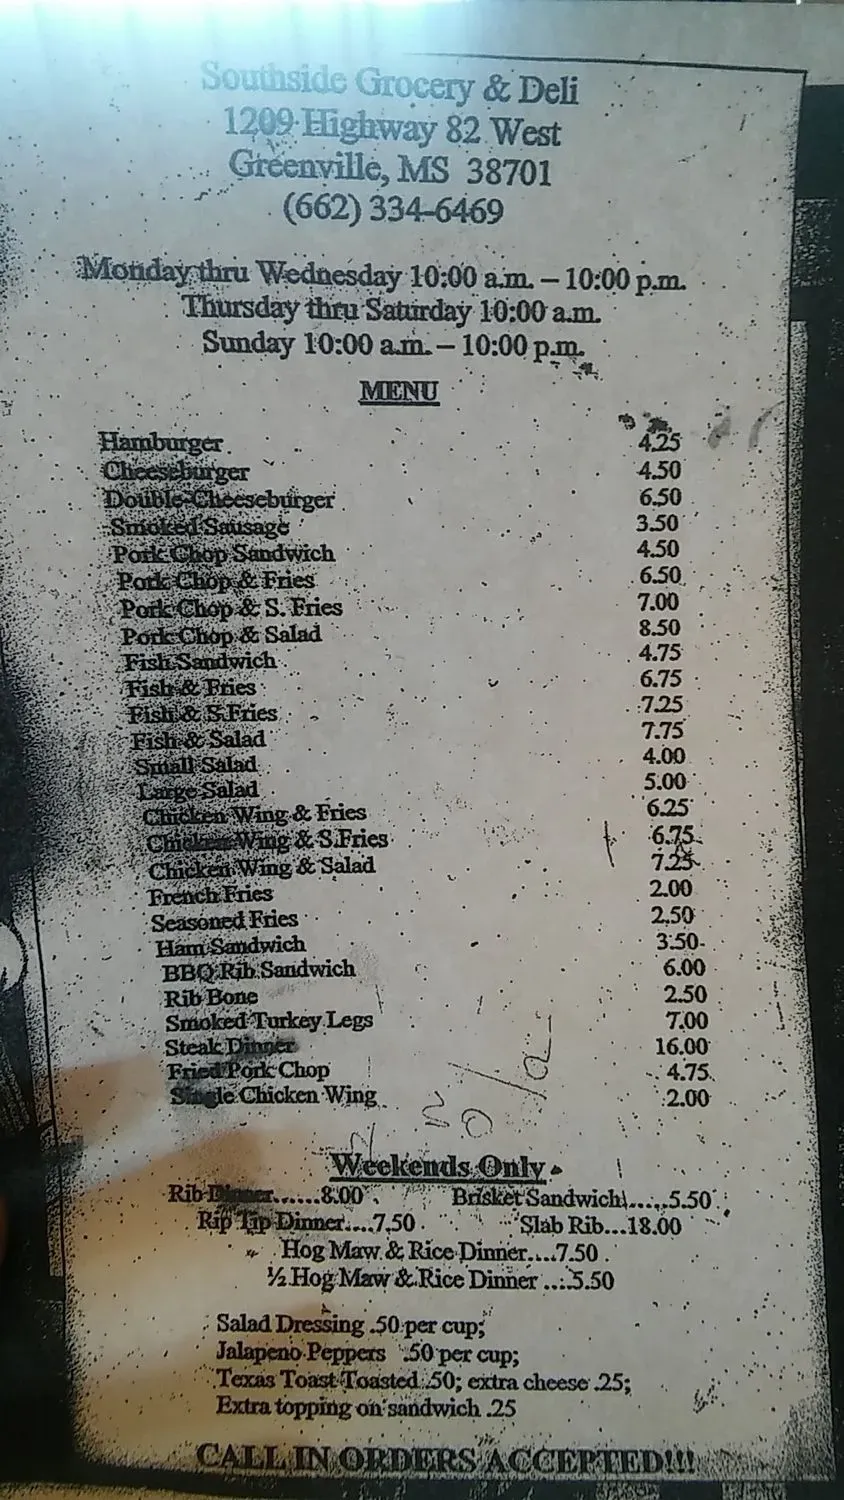 Southside Grocery & Deli
1209 Highway 82 West
Greenville, MS 38701
(662) 334-6469
Monday thru Wednesday 10:00 a.m. – 10:00 p.m.
Thursday thru Saturday 10:00 a.m.
Sunday 10:00 a.m. – 10:00 p.m.
MENU
Hamburger 4.25
Cheeseburger 4.50
Double Cheeseburger 6.50
Smoked Sausage 3.50
Pork Chop Sandwich 4.50
Pork Chop & Fries 6.50
Pork Chop & S. Fries 7.00
Pork Chop & Salad 8.50
Fish Sandwich 4.75
Fish & Fries 6.75
Fish & S.Fries 7.25
Fish & Salad 7.75
Small Salad 4.00
Large Salad 5.00
Chicken Wing & Fries 6.25
Chicken Wing & S.Fries 6.75
Chicken Wing & Salad 7.25
French Fries 2.00
Seasoned Fries 2.50
Ham Sandwich 3.50
BBQ Rib Sandwich 6.00
Rib Bone 2.50
Smoked Turkey Legs 7.00
Steak Dinner 16.00
Fried Pork Chop 4.75
Single Chicken Wing 2.00
Weekends Only
Rib Dinner......8.00 Brisket Sandwich......5.50
Rip Tip Dinner....7.50 Slab Rib...18.00
Hog Maw & Rice Dinner....7.50
½ Hog Maw & Rice Dinner ....5.50
Salad Dressing .50 per cup;
Jalapeno Peppers .50 per cup;
Texas Toast Toasted .50; extra cheese .25;
Extra topping on sandwich .25
CALL IN ORDERS ACCEPTED!!!